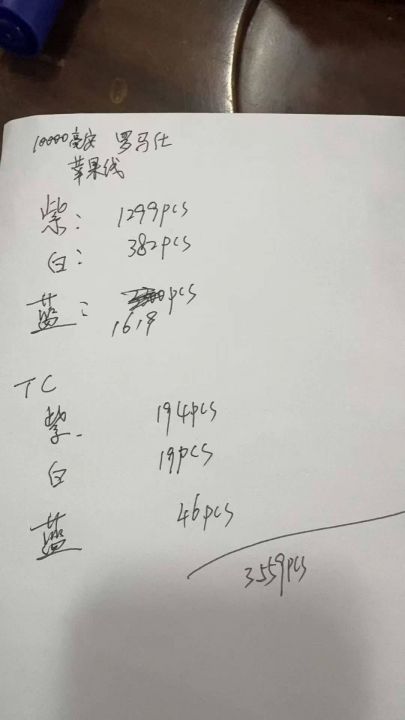 10000毫安 罗马仕
苹果线
紫: 1299pcs
白: 382pcs
蓝: pcs
1619
TC
紫. 194pcs
白 19pcs
蓝 46pcs
3559pcs